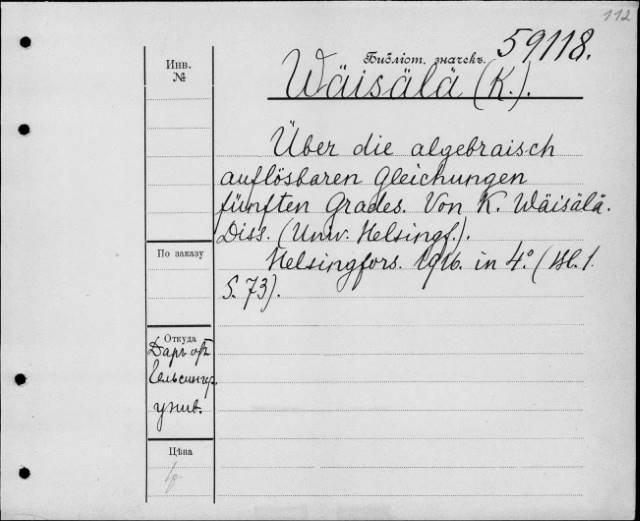 112
Инв.
№
Библіот. значекъ. 59118.
Wäisälä (K.).
Über die algebraisch
auflösbaren Gleichungen
fünften Grades. Von K. Wäisälä.
Diss. (Univ. Helsingf.).
Helsingfors. 1916. in 4.° (Bl. 1.
S. 73).
По заказу
Откуда
Даръ отъ
Гельсингф.
унив.
Цѣна